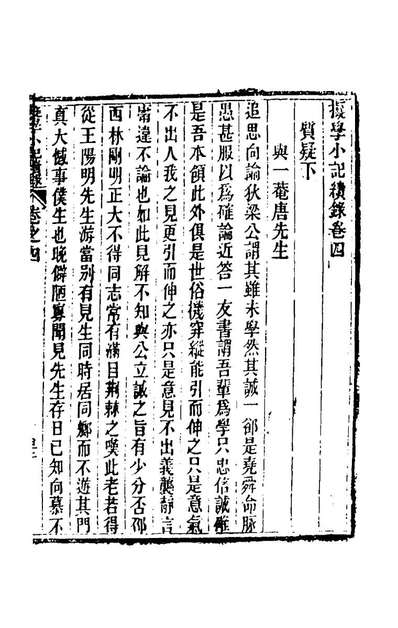 擬學小記續錄卷四
質疑下
與一菴唐先生
追思向論狄梁公謂其雖未學然其誠一郤是堯舜命脈
愚甚服以爲確論近答一友書謂吾輩爲學只忠信誠確
是吾本領此外俱是世俗機穽縱能引而伸之只是意氣
不出人我之見更引而伸之亦只是意見不出義襲靜言
庸違不論也如此見解不知與公立誠之旨有少分否邵
西林剛明正大不得同志常有滿目荆棘之嘆此老若得
從王陽明先生游當別有見生同時居同鄉而不遊其門
真大憾事僕生也晚僻陋寡聞見先生存日已知向慕不
小記續錄
卷之四